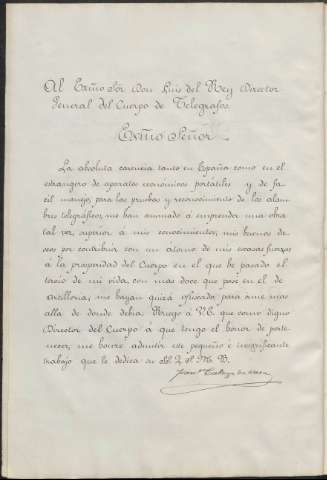 Al Exmo Sór Don Luis del Rey Director
General del Cuerpo de Telegrafos.
Exmo Señor
La absoluta carencia tanto en España como en el
estrangero de aparatos economicos portatiles y de fa-
cil manejo, para las pruebas y reconocimiento de los alam-
bres telegráficos, me han animado á emprender una obra
tal vez superior á mis conocimientos; mis buenos de-
seos por contribuir con un atomo de mis escasas fuerzas
á la prosperidad del Cuerpo en el que he pasado el
tercio de mi vida, con mas doce que pasé en el de
Artilleria, me hayan quizá ofuscado para irme mas
alla de donde debia. Ruego á V.E. que como digno
Director del Cuerpo á que tengo el honor de perte-
necer, me honre admitir este pequeño é insignificante
trabajo que le dedica su S. S. Q. B. S. M.